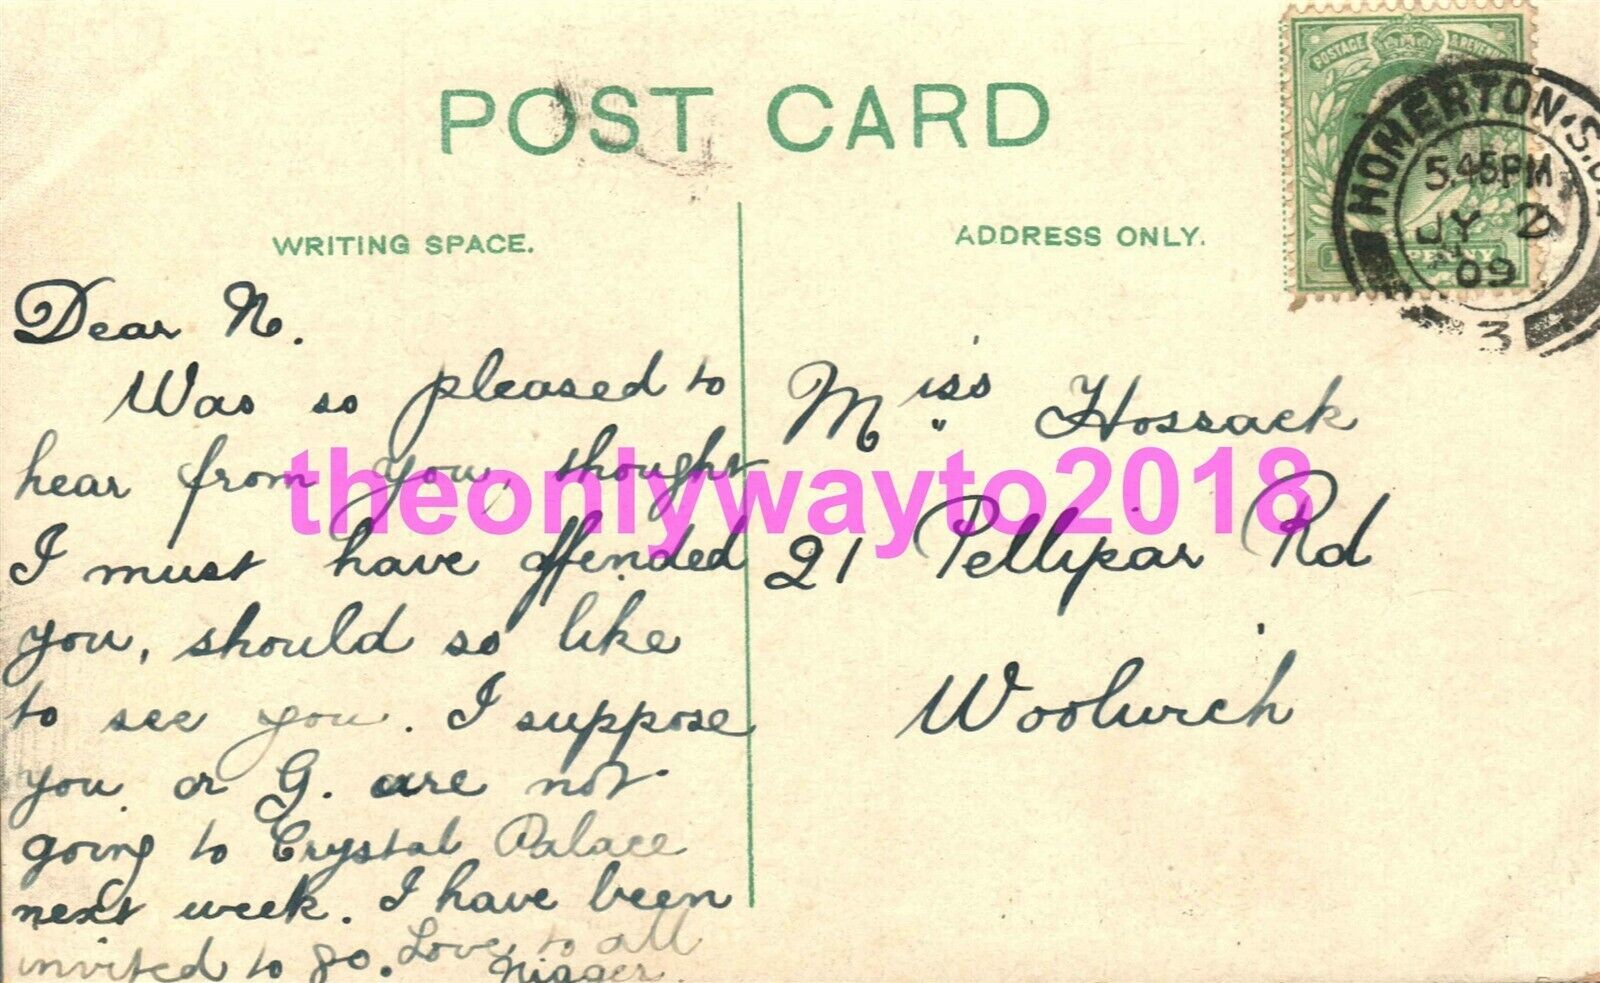 POST CARD
POSTAGE & REVENUE
HOMERTON. S.O.
5.45 PM
JY 2
09
3
WRITING SPACE.
ADDRESS ONLY.
Dear N.
Was so pleased to
hear from you, thought
I must have offended
you, should so like
to see you. I suppose
you or G. are not
going to Crystal Palace
next week. I have been
invited to go. Love to all
Nigger.
Miss Hossack
21 Pellipar Rd
Woolwich
theonlywayto2018